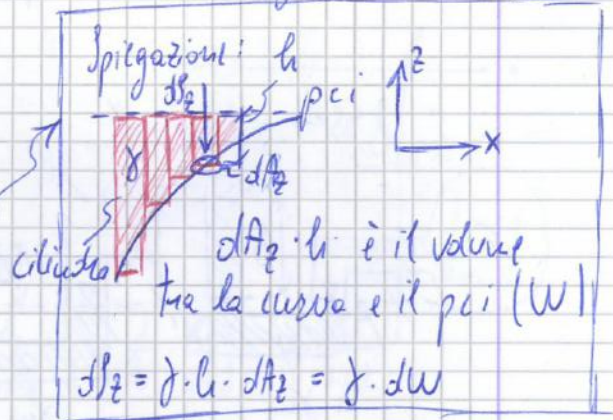 Spiegazione: h
dSz
pci
z
γ
x
dAz
cilindro
dAz·h è il volume
tra la curva e il pci (W)
dSz = γ·h·dAz = γ·dW